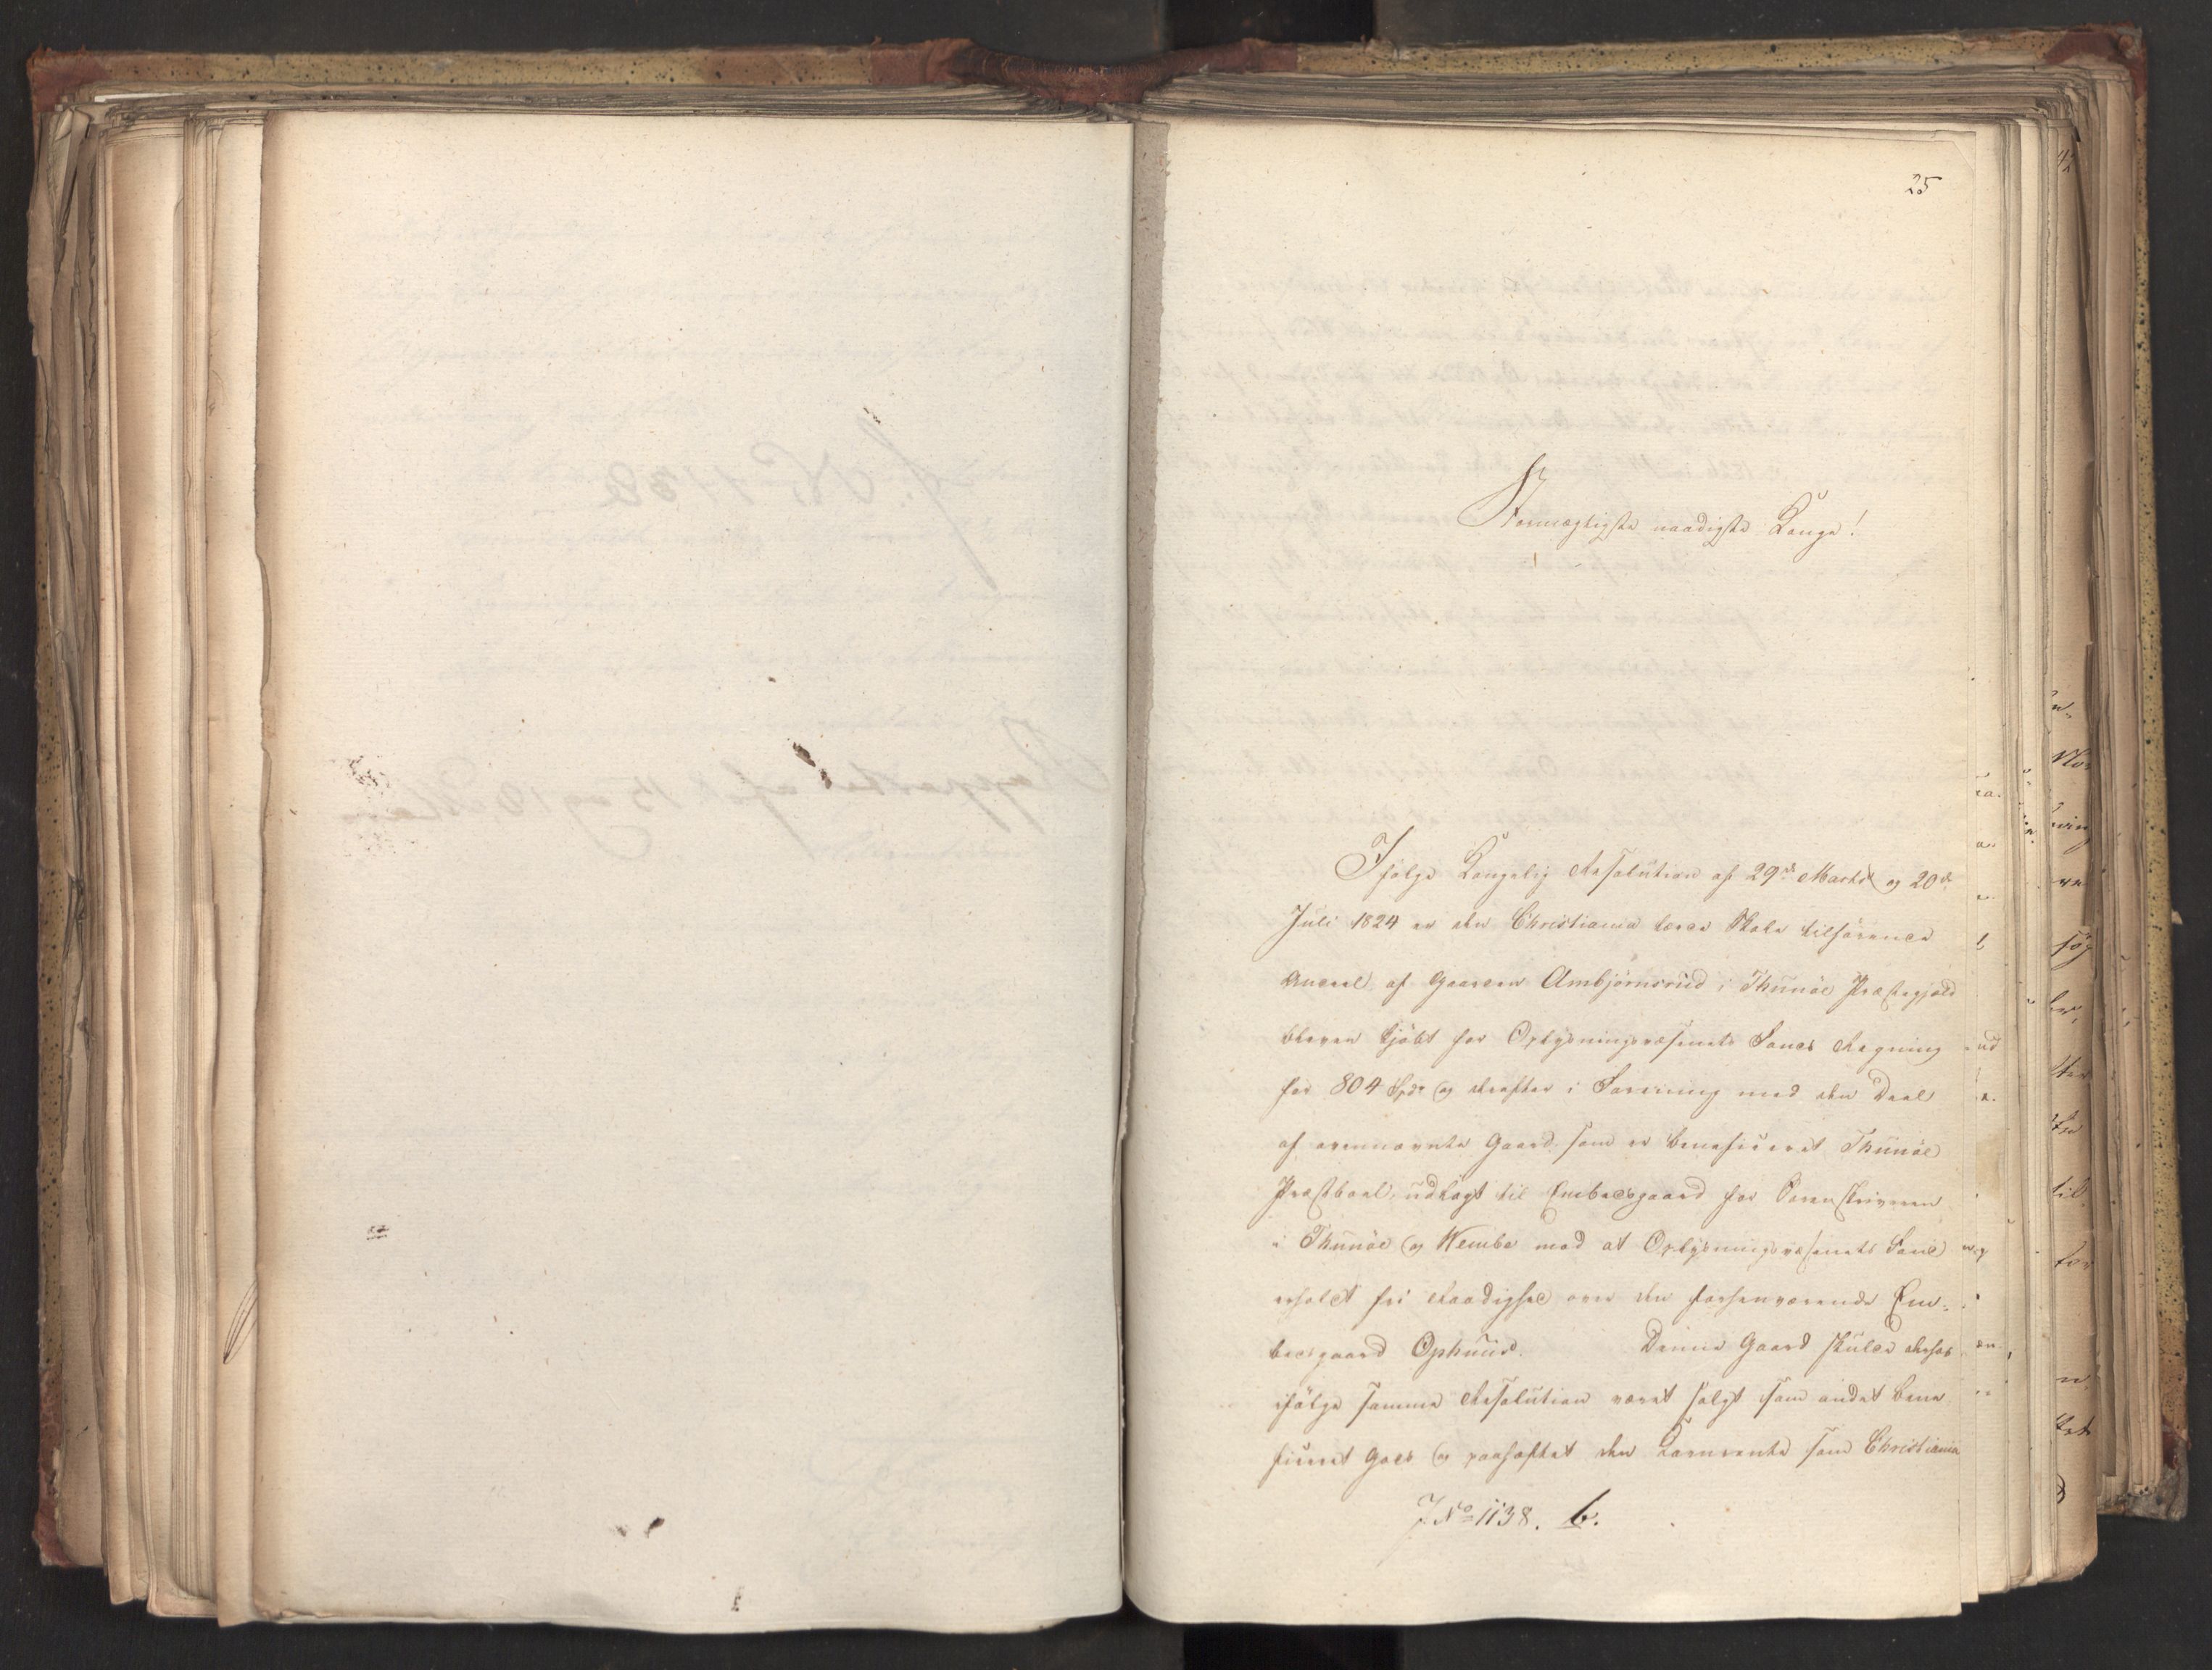 25
Stormægtigste naadigste Konge!
Ifølge Kongelig Resolution af 29de Marts og 20de
Juli 1824 er den Christiania lærde Skole tilhørende
Andeel af Gaarden Ambjørnsrud i Thunøe Præstegjæld
bleven kjøbt for Oplysningsvæsenets Fonds Regning
for 804 Spd. og derefter i Forening med den Deel
af ovennævnte Gaard som er beneficeret Thunøe
Præstbord, udlagt til Embedsgaard for Sorenskriveren
i Thunøe og Wembe mod at Oplysningsvæsenets Fond
erholdt fri Raadighed over den forhenværende Em-
bedsgaard Ophuus. Denne Gaard skulde derhos
ifølge samme Resolution været solgt som andet bene
ficeret Gods og paaheftet den Kornrente som Christiania
J No 1138. b.